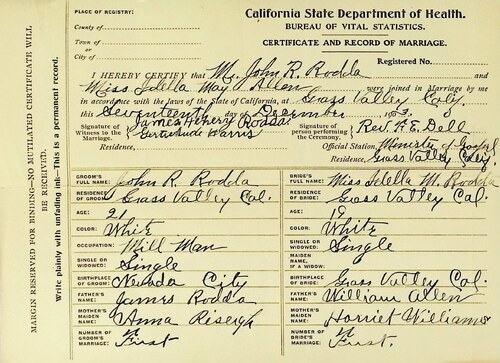 California State Department of Health.
PLACE OF REGISTRY:
BUREAU OF VITAL STATISTICS.
County of
CERTIFICATE AND RECORD OF MARRIAGE.
Town of
or
City of
Registered No.
I HEREBY CERTIFY that Mr. John R. Rodda and
Miss Idella May Allen were joined in Marriage by me
in accordance with the Laws of the State of California, at Grass Valley Caly.
this Seventeenth day of December 1
James Henery Rodda
Signature of Witness to the Marriage. Gertrude Harris
Signature of person performing the Ceremony. Rev. F. E. Dell
Residence,
Official Station, Minister of Gospel
Residence, Grass Valley Caly.
GROOM'S FULL NAME: John R. Rodda BRIDE'S FULL NAME: Miss Idella M. Rodda
RESIDENCE OF GROOM: Grass Valley Cal. RESIDENCE OF BRIDE: Grass Valley Cal.
AGE: 21 AGE: 19
COLOR: White COLOR: White
OCCUPATION: Mill Man SINGLE OR WIDOWED: Single
SINGLE OR WIDOWED: Single MAIDEN NAME, IF A WIDOW:
BIRTHPLACE OF GROOM: Nevada City BIRTHPLACE OF BRIDE: Grass Valley Cal.
FATHER'S NAME: James Rodda FATHER'S NAME: William Allen
MOTHER'S MAIDEN NAME: Anna MOTHER'S MAIDEN NAME: Harriet Williams
NUMBER OF GROOM'S MARRIAGE: First NUMBER OF BRIDE'S MARRIAGE: First.
MARGIN RESERVED FOR BINDING—NO MUTILATED CERTIFICATE WILL
BE RECEIVED.
Write plainly with unfading ink—This is a permanent record.